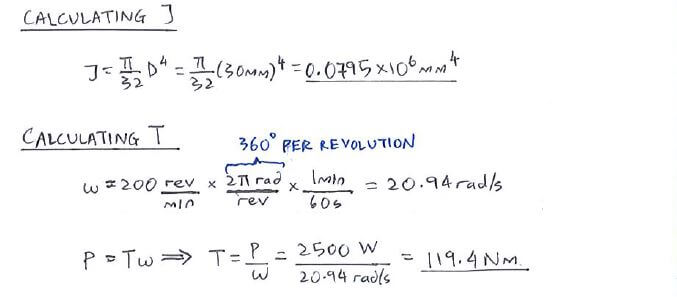 CALCULATING J
J = π/32 D⁴ = π/32 (30MM)⁴ = 0.0795 × 10⁶ MM⁴
CALCULATING T
360° PER REVOLUTION
ω = 200 rev/MIN × 2π rad/rev × 1min/60s = 20.94 rad/s
P = Tω ⟹ T = P/ω = 2500 W/20.94 rad/s = 119.4 NM.